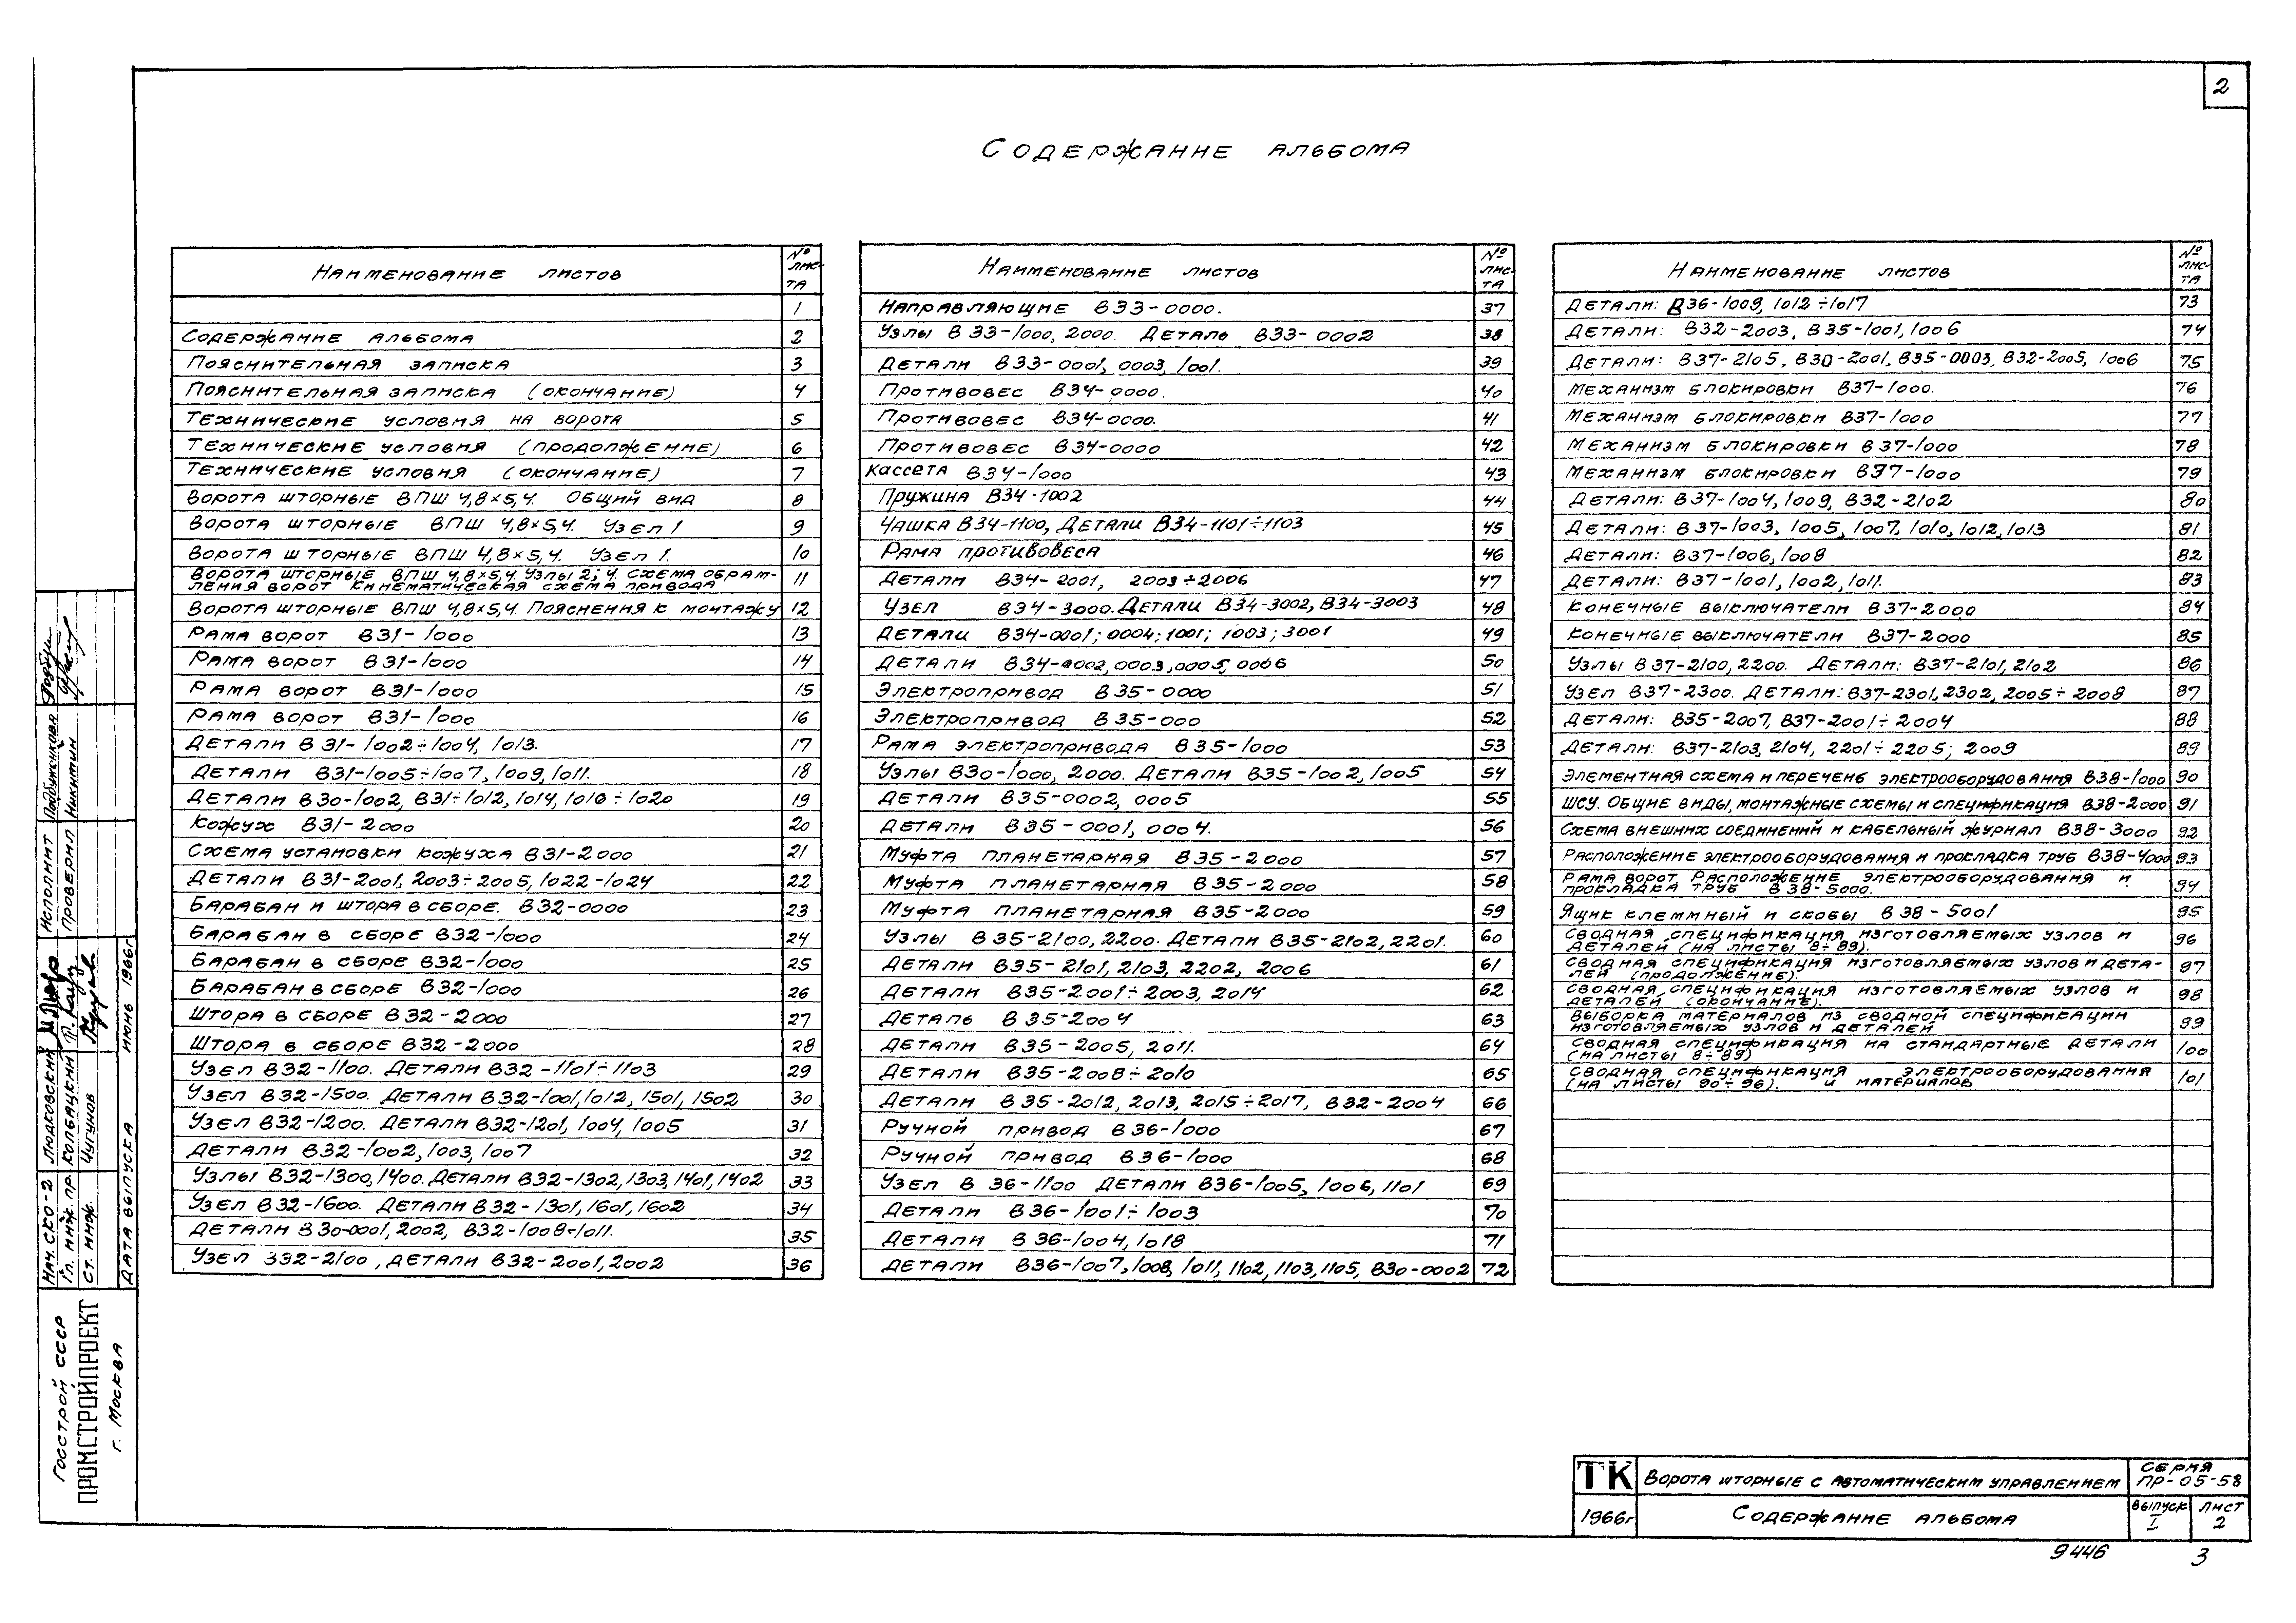 2
Содержание альбома
Наименование листов № лис-та
1
Содержание альбома 2
Пояснительная записка 3
Пояснительная записка (окончание) 4
Технические условия на ворота 5
Технические условия (продолжение) 6
Технические условия (окончание) 7
Ворота шторные ВПШ 4,8×5,4. Общий вид 8
Ворота шторные ВПШ 4,8×5,4. Узел 1 9
Ворота шторные ВПШ 4,8×5,4. Узел 1. 10
Ворота шторные ВПШ 4,8×5,4. Узлы 2; 4. Схема обрам-
ления ворот Кинематическая схема привода 11
Ворота шторные ВПШ 4,8×5,4. Пояснения к монтажу 12
Рама ворот В31-1000 13
Рама ворот В31-1000 14
Рама ворот В31-1000 15
Рама ворот В31-1000 16
Детали В31-1002÷1004, 1013. 17
Детали В31-1005÷1007, 1009, 1011. 18
Детали В30-1002, В31÷1012, 1014, 1016÷1020 19
Кожух В31-2000 20
Схема установки кожуха В31-2000 21
Детали В31-2001, 2003÷2005, 1022-1024 22
Барабан и штора в сборе. В32-0000 23
Барабан в сборе В32-1000 24
Барабан в сборе В32-1000 25
Барабан в сборе В32-1000 26
Штора в сборе В32-2000 27
Штора в сборе В32-2000 28
Узел В32-1100. Детали В32-1101÷1103 29
Узел В32-1500. Детали В32-1001, 1012, 1501, 1502 30
Узел В32-1200. Детали В32-1201, 1004, 1005 31
Детали В32-1002, 1003, 1007 32
Узлы В32-1300, 1400. Детали В32-1302, 1303, 1401, 1402 33
Узел В32-1600. Детали В32-1301, 1601, 1602 34
Детали В30-0001, 2002, В32-1008÷1011. 35
Узел В32-2100, детали В32-2001, 2002 36
Наименование листов № лис-та
Направляющие В33-0000. 37
Узлы В33-1000, 2000. Деталь В33-0002 38
Детали В33-0001, 0003, 1001. 39
Противовес В34-0000. 40
Противовес В34-0000. 41
Противовес В34-0000 42
Кассета В34-1000 43
Пружина В34-1002 44
Чашка В34-1100, Детали В34-1101÷1103 45
Рама противовеса 46
Детали В34-2001, 2003÷2006 47
Узел В34-3000. Детали В34-3002, В34-3003 48
Детали В34-0001; 0004; 1001; 1003; 3001 49
Детали В34-0002, 0003, 0005, 0006 50
Электропривод В35-0000 51
Электропривод В35-000 52
Рама электропривода В35-1000 53
Узлы В30-1000, 2000. Детали В35-1002, 1005 54
Детали В35-0002, 0005 55
Детали В35-0001, 0004. 56
Муфта планетарная В35-2000 57
Муфта планетарная В35-2000 58
Муфта планетарная В35-2000 59
Узлы В35-2100, 2200. Детали В35-2102, 2201. 60
Детали В35-2101, 2103, 2202, 2006 61
Детали В35-2001÷2003, 2014 62
Деталь В35-2004 63
Детали В35-2005, 2011. 64
Детали В35-2008÷2010 65
Детали В35-2012, 2013, 2015÷2017, В32-2004 66
Ручной привод В36-1000 67
Ручной привод В36-1000 68
Узел В36-1100 Детали В36-1005, 1006, 1101 69
Детали В36-1001÷1003 70
Детали В36-1004, 1018 71
Детали В36-1007, 1008, 1011, 1102, 1103, 1105, В30-0002 72
Наименование листов № лис-та
Детали: В36-1009, 1012÷1017 73
Детали: В32-2003, В35-1001, 1006 74
Детали: В37-2105, В30-2001, В35-0003, В32-2005, 1006 75
Механизм блокировки В37-1000. 76
Механизм блокировки В37-1000 77
Механизм блокировки В37-1000 78
Механизм блокировки В37-1000 79
Детали: В37-1004, 1009, В32-2102 80
Детали: В37-1003, 1005, 1007, 1010, 1012, 1013 81
Детали: В37-1006, 1008 82
Детали: В37-1001, 1002, 1011. 83
Конечные выключатели В37-2000 84
Конечные выключатели В37-2000 85
Узлы В37-2100, 2200. Детали: В37-2101, 2102 86
Узел В37-2300. Детали: В37-2301, 2302, 2005÷2008 87
Детали: В35-2007, В37-2001÷2004 88
Детали: В37-2103, 2104, 2201÷2205; 2009 89
Элементная схема и перечень электрооборудования В38-1000 90
ШСУ. Общие виды, монтажные схемы и спецификация В38-2000 91
Схема внешних соединений и кабельный журнал В38-3000 92
Расположение электрооборудования и прокладка труб В38-4000 93
Рама ворот. Расположение электрооборудования и
прокладка труб В38-5000. 94
Ящик клеммный и скобы В38-5001 95
Сводная спецификация изготовляемых узлов и
деталей (на листы 8÷89). 96
Сводная спецификация изготовляемых узлов и дета-
лей (продолжение). 97
Сводная спецификация изготовляемых узлов и
деталей (окончание). 98
Выборка материалов из сводной спецификации
изготовляемых узлов и деталей 99
Сводная спецификация на стандартные детали
(на листы 8÷89) 100
Сводная спецификация электрооборудования
(на листы 90÷96). и материалов 101
Нач. СКО-2 Людковский
Гл. инж. пр. Кольбацкий
Ст. инж. Чугунов
Дата выпуска июнь 1966г
Исполнит
Проверил Никитин
Госстрой СССР
ПРОМСТРОЙПРОЕКТ
г. Москва
ТК Ворота шторные с автоматическим управлением Серия ПР-05-58
1966г Содержание альбома Выпуск I Лист 2
9446 3